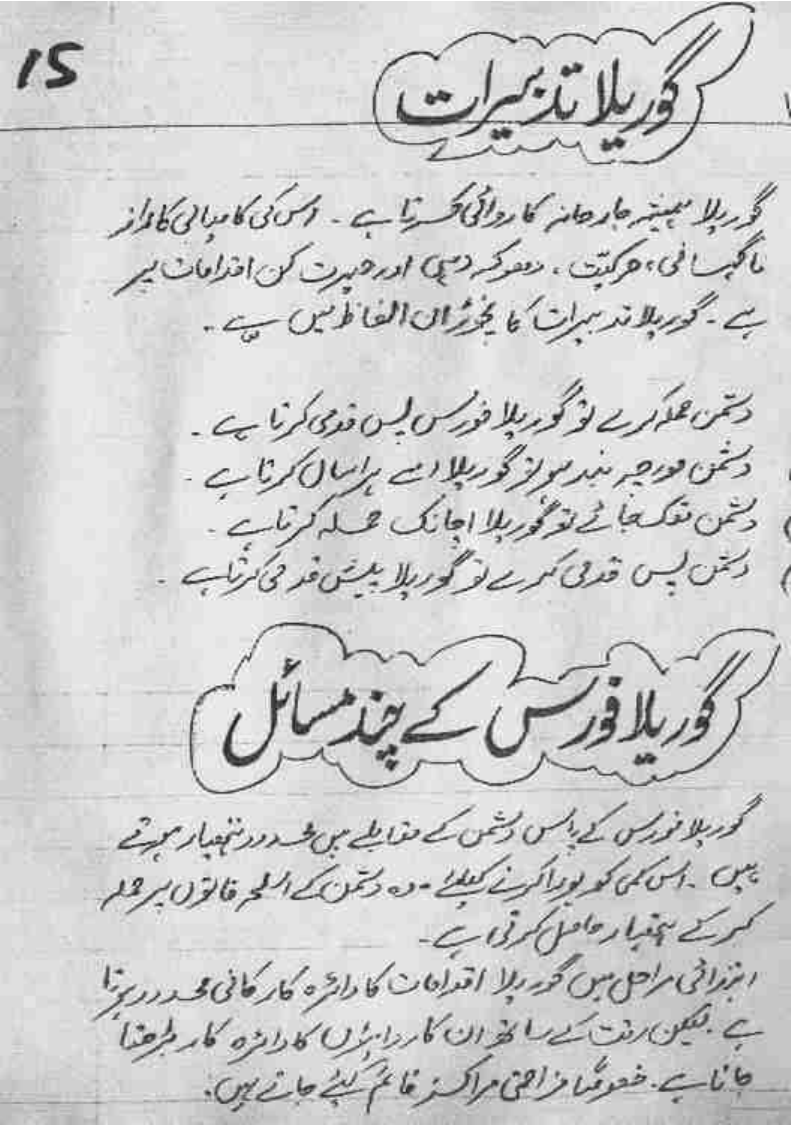 15
گوریلا تدبیرات
گوریلا ہمیشہ جارحانہ کاروائی کرتا ہے ۔ اس کی کامیابی کا راز
ناگہانی، حرکیت، دھوکہ دہی اور حیرت کن اقدامات پر
ہے ۔ گوریلا تدبیرات کا نچوڑ ان الفاظ میں ہے ۔
دشمن حملہ کرے تو گوریلا فورس پس قدمی کرتا ہے ۔
دشمن مورچہ بند ہو تو گوریلا اسے ہراساں کرتا ہے ۔
دشمن تھک جائے تو گوریلا اچانک حملہ کرتا ہے ۔
دشمن پس قدمی کرے تو گوریلا پیش قدمی کرتا ہے ۔
گوریلا فورس کے چند مسائل
گوریلا فورس کے پاس دشمن کے مقابلے میں محدود ہتھیار ہوتے
ہیں ۔ اس کمی کو پورا کرنے کیلئے وہ دشمن کے اسلحہ خانوں پر حملہ
کر کے ہتھیار حاصل کرتی ہے ۔
ابتدائی مراحل میں گوریلا اقدامات کا دائرہ کار کافی محدود ہوتا
ہے ۔ لیکن وقت کے ساتھ ان کاروایئوں کا دائرہ کار بڑھتا
جاتا ہے ۔ خصوصًا مزاحمتی مراکز قائم کیئے جاتے ہیں ۔